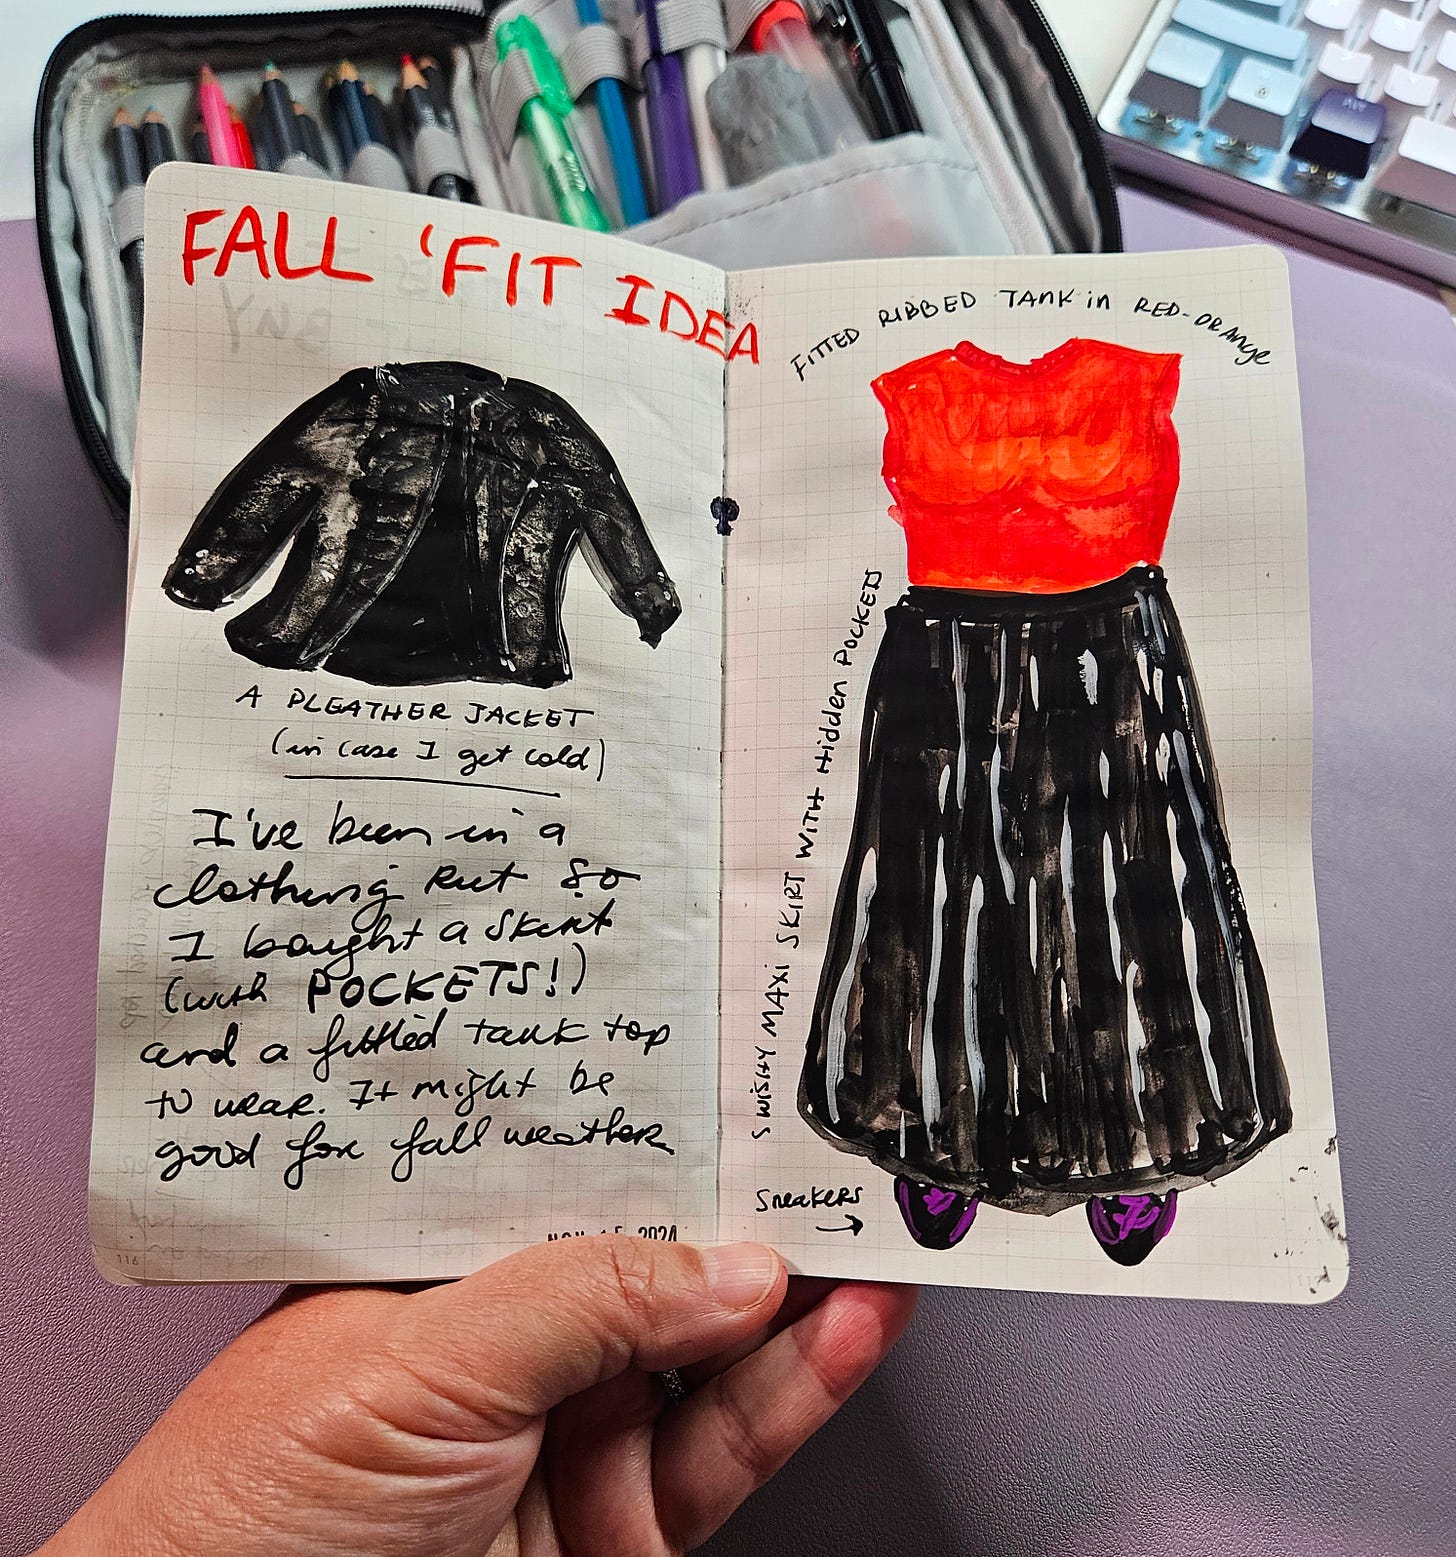 FALL 'FIT IDEA
A PLEATHER JACKET
(in case I get cold)
I've been in a
clothing rut so
I bought a skirt
(with POCKETS!)
and a fitted tank top
to wear. It might be
good for fall weather
2024
116
FITTED RIBBED TANK in RED-ORANGE
SWISHY MAXI SKIRT WITH Hidden POCKETS
Sneakers